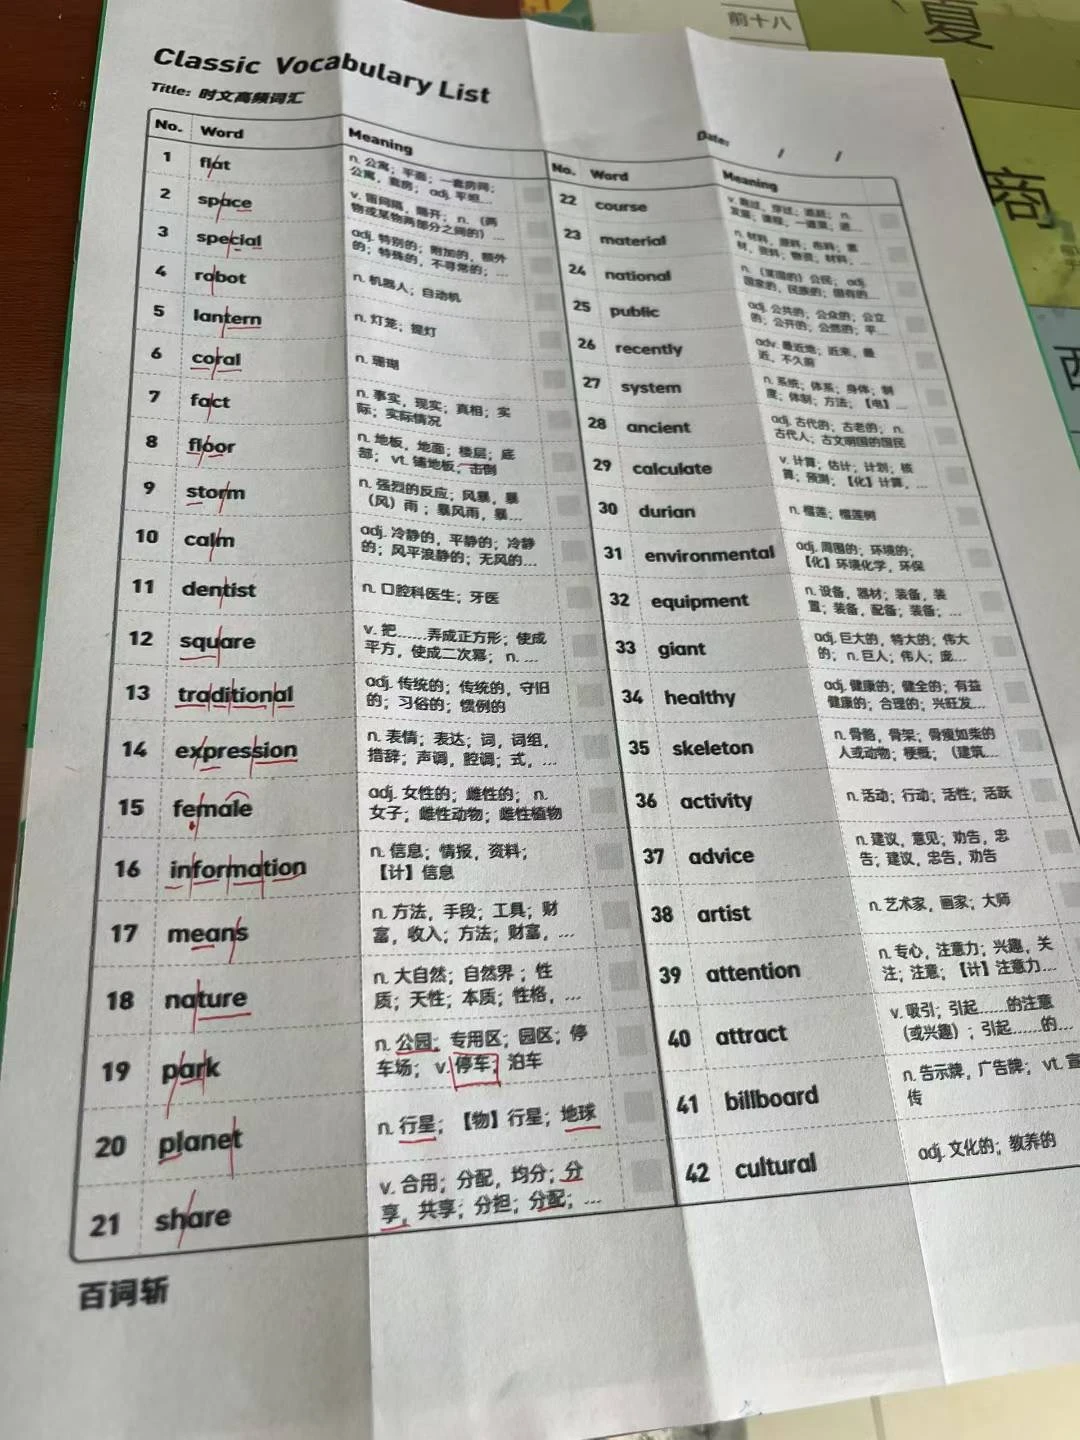 前十八
夏
商
西
Classic Vocabulary List
Title: 时文高频词汇
Date: / /
No. Word Meaning
1 flat n. 公寓；平面；一套房间；
公寓，套房；adj. 平坦...
2 space v. 留间隔，隔开；n.（两
物或某物两部分之间的）...
3 special adj. 特别的；附加的，额外
的；特殊的，不寻常的；...
4 robot n. 机器人；自动机
5 lantern n. 灯笼；提灯
6 coral n. 珊瑚
7 fact n. 事实，现实；真相；实
际；实际情况
8 floor n. 地板，地面；楼层；底
部；vt. 铺地板；击倒
9 storm n. 强烈的反应；风暴，暴
（风）雨；暴风雨，暴...
10 calm adj. 冷静的，平静的；冷静
的；风平浪静的；无风的...
11 dentist n. 口腔科医生；牙医
12 square v. 把......弄成正方形；使成
平方，使成二次幂；n. ...
13 traditional adj. 传统的；传统的，守旧
的；习俗的；惯例的
14 expression n. 表情；表达；词，词组，
措辞；声调，腔调；式，...
15 female adj. 女性的；雌性的；n.
女子；雌性动物；雌性植物
16 information n. 信息；情报，资料；
【计】信息
17 means n. 方法，手段；工具；财
富，收入；方法；财富，...
18 nature n. 大自然；自然界；性
质；天性；本质；性格，...
19 park n. 公园；专用区；园区；停
车场；v. 停车；泊车
20 planet n. 行星；【物】行星；地球
21 share v. 合用；分配，均分；分
享，共享；分担；分配；...
No. Word Meaning
22 course
23 material n. 材料，原料；布料；素
材，资料；物资；材料，...
24 national n.（某国的）公民；adj.
国家的，民族的；国有的...
25 public adj. 公共的；公众的；公立
的；公开的；公然的；平...
26 recently adv. 最近地；近来，最
近，不久前
27 system n. 系统；体系；身体；制
度；体制；方法；【电】...
28 ancient adj. 古代的；古老的；n.
古代人；古文明国的国民
29 calculate v. 计算；估计；计划；核
算；预测；【化】计算，...
30 durian n. 榴莲；榴莲树
31 environmental adj. 周围的；环境的；
【化】环境化学，环保
32 equipment n. 设备，器材；装备，装
置；装备，配备；装备；...
33 giant adj. 巨大的，特大的；伟大
的；n. 巨人；伟人；庞...
34 healthy adj. 健康的；健全的；有益
健康的；合理的；兴旺发...
35 skeleton n. 骨骼，骨架；骨瘦如柴的
人或动物；梗概；（建筑...
36 activity n. 活动；行动；活性；活跃
37 advice n. 建议，意见；劝告，忠
告；建议，忠告，劝告
38 artist n. 艺术家，画家；大师
39 attention n. 专心，注意力；兴趣，关
注；注意；【计】注意力...
40 attract v. 吸引；引起......的注意
（或兴趣）；引起......的...
41 billboard n. 告示牌，广告牌；vt. 宣
传
42 cultural adj. 文化的；教养的
百词斩